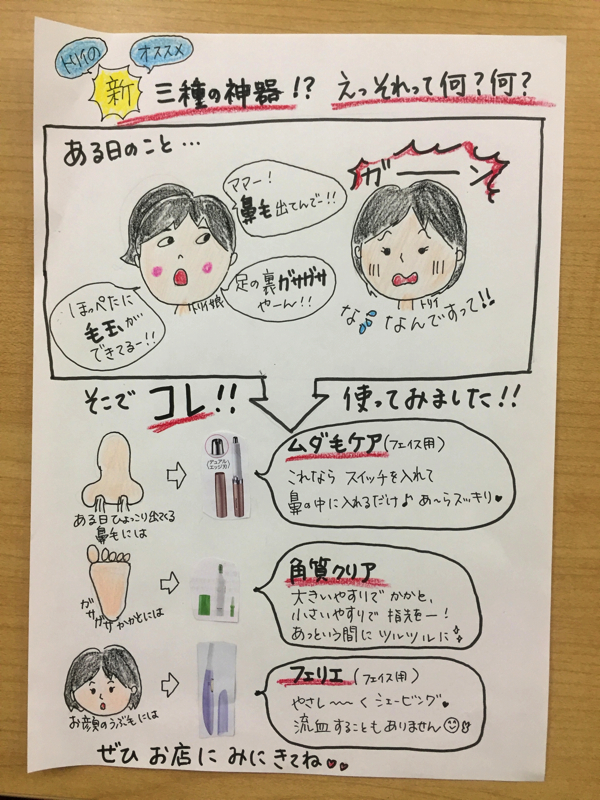 トリイの
オススメ
新
三種の神器!? えっそれって何?何?
ある日のこと…
ママー!
鼻毛出てんでー!!
足の裏ガサガサ
やーん!!
トリイ娘
ほっぺたに
毛玉が
できてるー!!
ガーーン
トリイ
な、なんですって!!
そこでコレ!! 使ってみました!!
ある日ひょっこり出てくる
鼻毛には
デュアル
エッジ刃
ムダ毛ケア(フェイス用)
これなら スイッチを入れて
鼻の中に入れるだけ♪ あ〜らスッキリ♥
ガサガサかかとには
角質クリア
大きいやすりで かかと、
小さいやすりで 指先を一!
あっという間に ツルツルに
お顔のうぶ毛には
フェリエ(フェイス用)
やさし〜〜く シェービング♥
流血することもありません
ぜひ お店に みにきてね♥♥